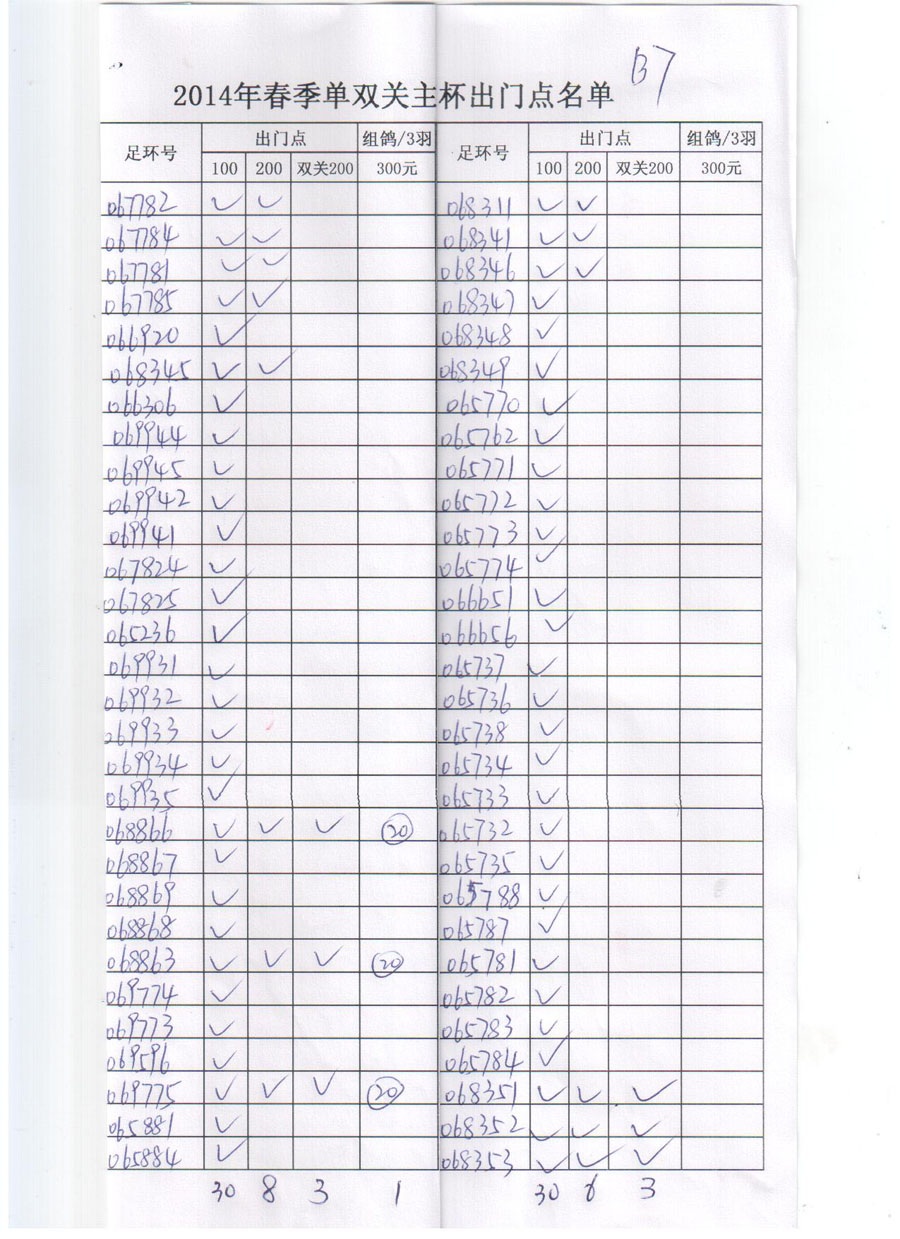 B7
2014年春季单双关主杯出门点名单
足环号 出门点 组鸽/3羽 足环号 出门点 组鸽/3羽
100 200 双关200 300元 100 200 双关200 300元
067782 ✓ ✓ 068311 ✓ ✓
067784 ✓ ✓ 068341 ✓ ✓
067781 ✓ ✓ 068346 ✓ ✓
067785 ✓ ✓ 068347 ✓
066920 ✓ 068348 ✓
068345 ✓ ✓ 068349 ✓
066306 ✓ 065770 ✓
069944 ✓ 065762 ✓
069945 ✓ 065771 ✓
069942 ✓ 065772 ✓
069941 ✓ 065773 ✓
067824 ✓ 065774 ✓
067825 ✓ 066651 ✓
065236 ✓ 066656 ✓
069931 ✓ 065737 ✓
069932 ✓ 065736 ✓
069933 ✓ 065738 ✓
069934 ✓ 065734 ✓
069935 ✓ 065733 ✓
068866 ✓ ✓ ✓ 20 065732 ✓
068867 ✓ 065735 ✓
068869 ✓ 065788 ✓
068868 ✓ 065787 ✓
068863 ✓ ✓ ✓ 20 065781 ✓
069774 ✓ 065782 ✓
069773 ✓ 065783 ✓
069596 ✓ 065784 ✓
069775 ✓ ✓ ✓ 20 068351 ✓ ✓ ✓
065881 ✓ 068352 ✓ ✓ ✓
065884 ✓ 068353 ✓ ✓ ✓
30 8 3 1 30 6 3